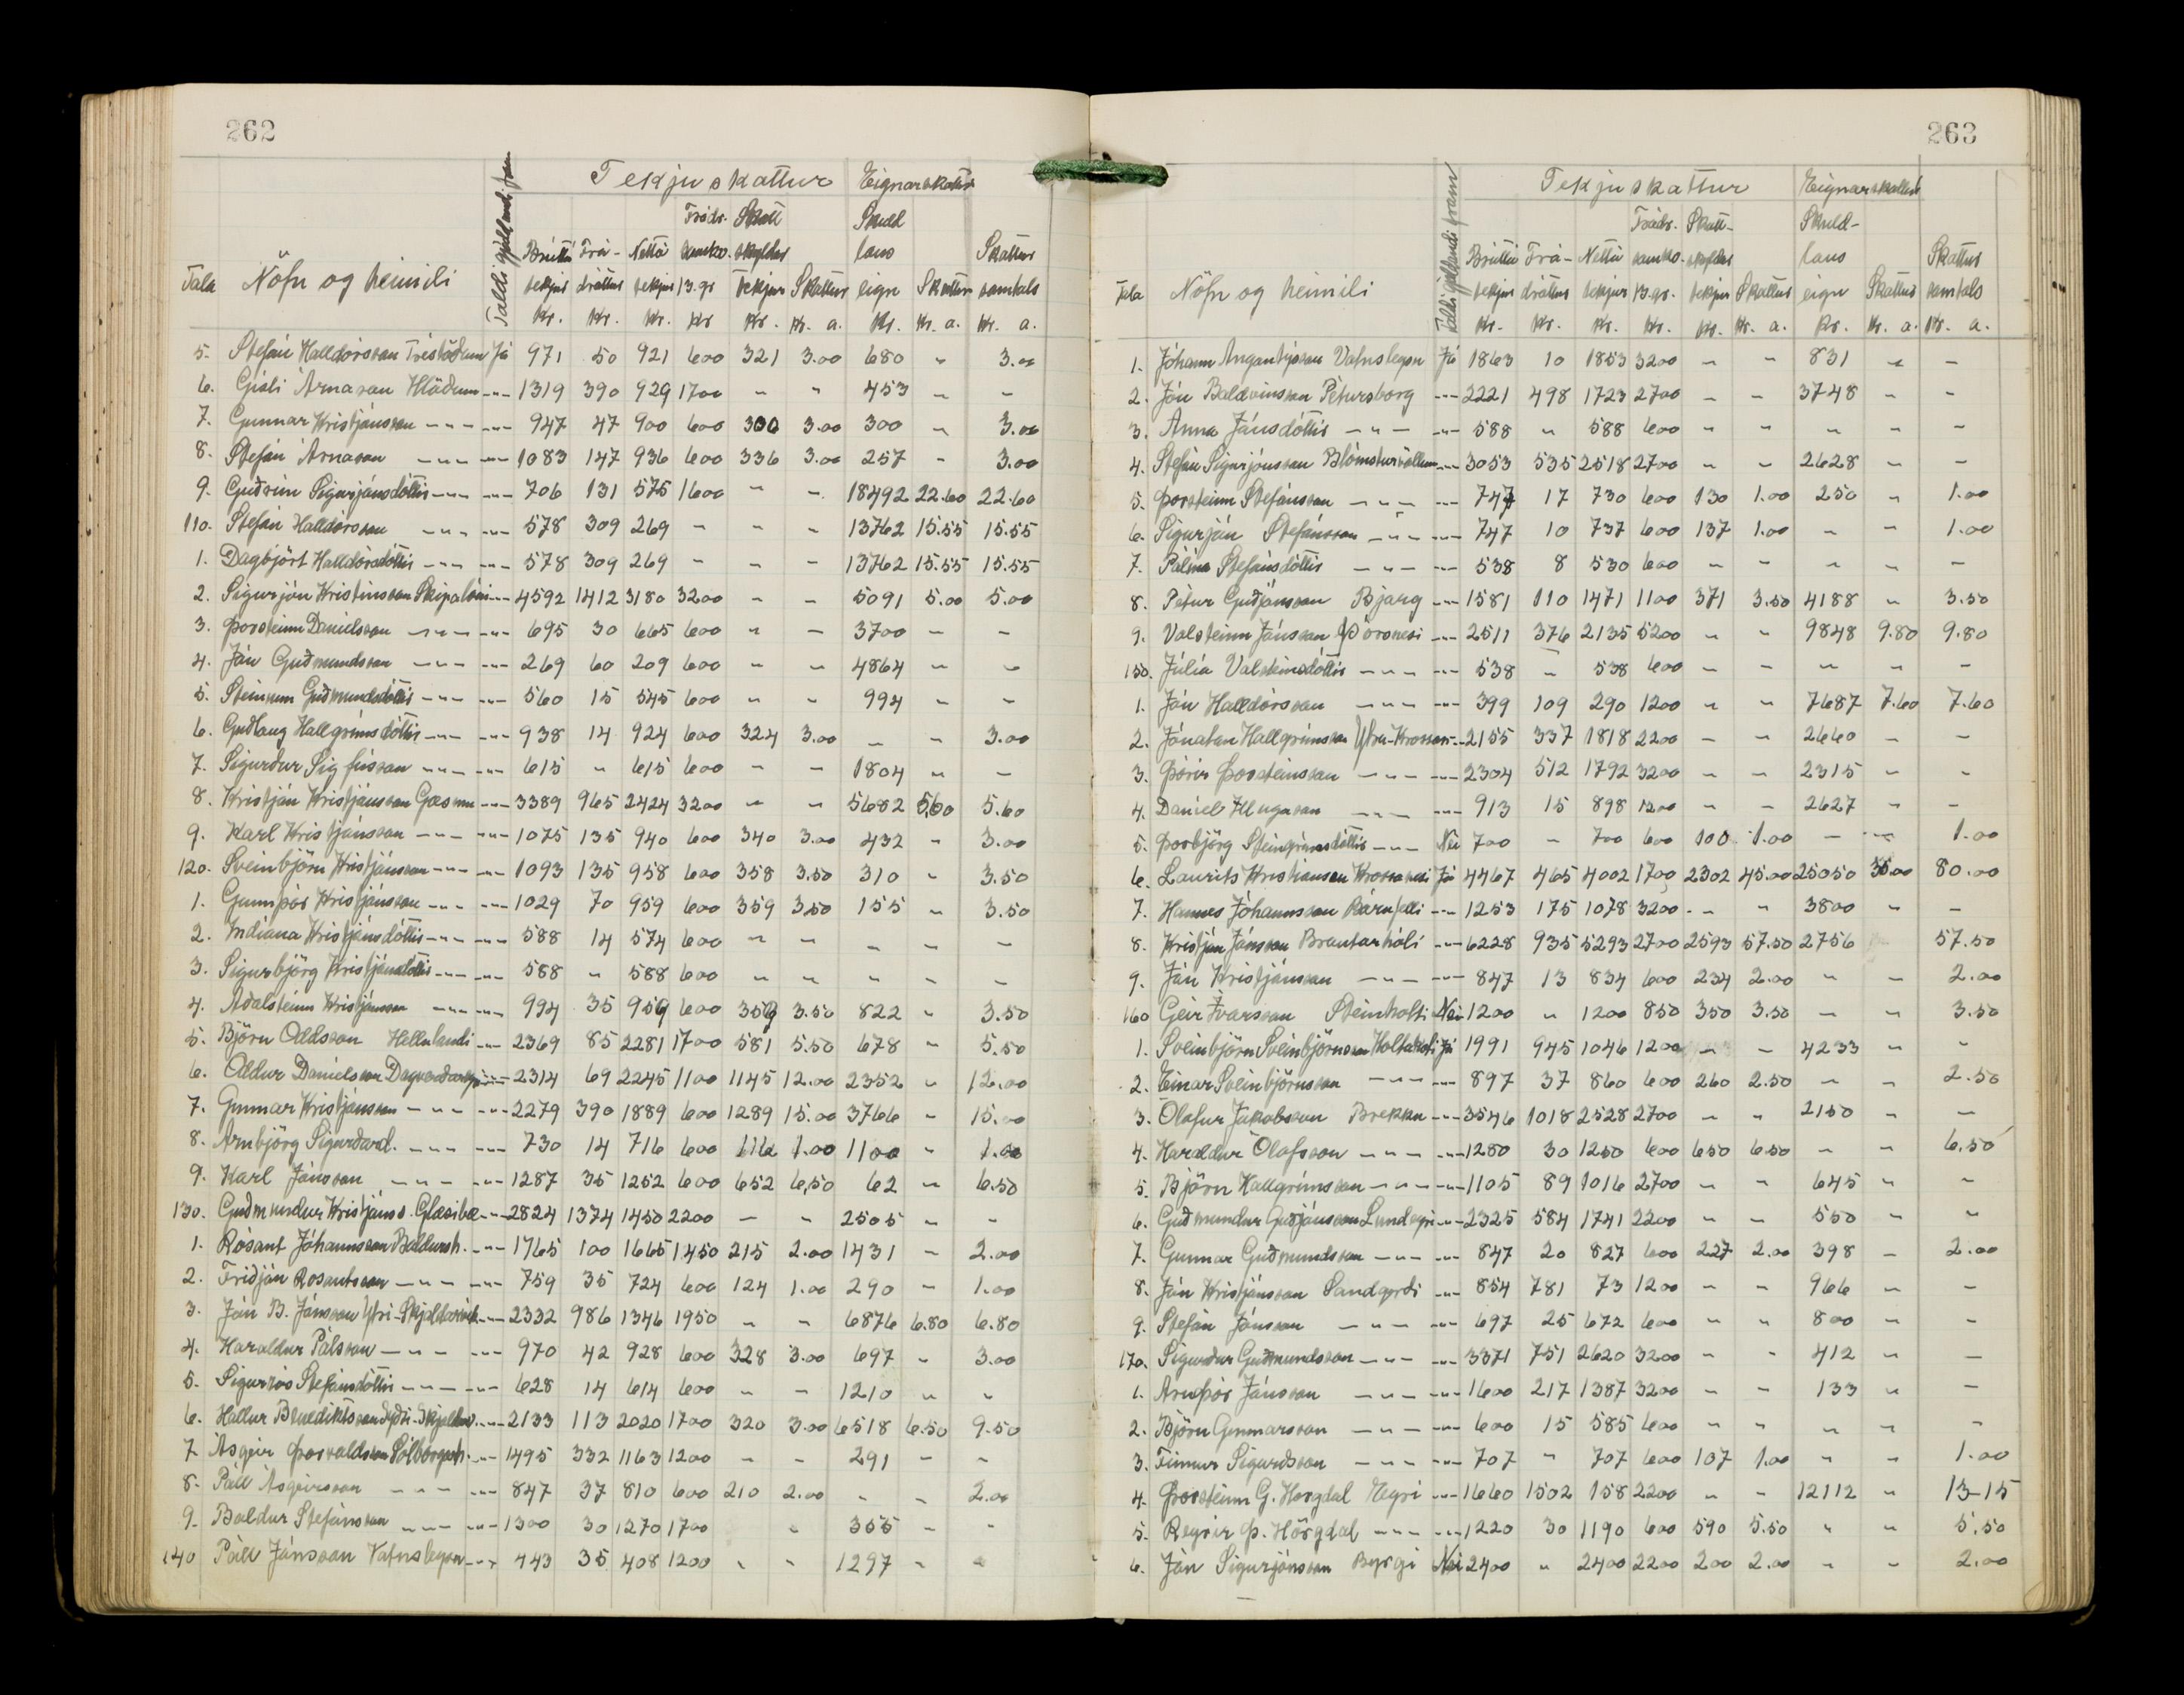 262
Taldi gjaldandi fram
Tekjuskattur Eignarskattur
Frádr. Skatt Skuld
Brúttó Frá- Nettó samkv. skyldar laus Skattur
Tala Nöfn og heimili tekjur dráttur tekjur 13.gr tekjur Skattur eign Skattur samtals
Kr. Kr. Kr. Kr Kr. Kr. a. Kr. Kr. a. Kr. a.
5. Stefán Halldórsson Tréstöðum Já 971 50 921 600 321 3.00 680 " 3.00
6. Gísli Árnason Hlöðum -"- 1319 390 929 1700 - " 453 - -
7. Gunnar Kristjánsson -"- -"- 947 47 900 600 300 3.00 300 " 3.00
8. Stefán Árnason -"- -"- 1083 147 936 600 336 3.00 257 - 3.00
9. Guðrún Sigurjónsdóttir -"- -"- 706 131 575 1600 " - 18492 22.60 22.60
110. Stefán Halldórsson -"- -"- 578 309 269 - - - 13762 15.55 15.55
1. Dagbjört Halldórsdóttir -"- -"- 578 309 269 - - - 13762 15.55 15.55
2. Sigurjón Kristinsson Skipalóni -"- 4592 1412 3180 3200 - - 5091 5.00 5.00
3. Þorsteinn Daníelsson -"- -"- 695 30 665 600 " - 3700 - -
4. Jón Guðmundsson -"- -"- 269 60 209 600 " " 4864 " "
5. Steinunn Guðmundsdóttir -"- -"- 560 15 545 600 " " 994 - -
6. Guðlaug Hallgrímsdóttir -"- -"- 938 14 924 600 324 3.00 - " 3.00
7. Sigurður Sigfússon -"- -"- 615 " 615 600 " - 1804 " -
8. Kristján Kristjánsson Gæsum -"- 3389 965 2424 3200 " " 5682 5.60 5.60
9. Karl Kristjánsson -"- -"- 1075 135 940 600 340 3.00 432 - 3.00
120. Sveinbjörn Kristjánsson -"- -"- 1093 135 958 600 358 3.50 310 " 3.50
1. Gunnþór Kristjánsson -"- -"- 1029 70 959 600 359 3.50 155 " 3.50
2. Indíana Kristjánsdóttir -"- -"- 588 14 574 600 " - - - -
3. Sigurbjörg Kristjánsdóttir -"- -"- 588 " 588 600 " " " - -
4. Aðalsteinn Kristjánsson -"- -"- 994 35 959 600 359 3.50 822 " 3.50
5. Björn Oddsson Hellulandi -"- 2369 85 2281 1700 581 5.50 678 " 5.50
6. Oddur Daníelsson -"- 2314 69 2245 1100 1145 12.00 2352 " 12.00
7. Gunnar Kristjánsson -"- -"- 2279 390 1889 600 1289 15.00 3766 " 15.00
8. Arnbjörg Sigurðard. -"- -"- 730 14 716 600 116 1.00 1100 " 1.00
9. Karl Jónsson -"- -"- 1287 35 1252 600 652 6,50 62 " 6.50
130. Guðmundur Kristjánss. Glæsibæ -"- 2824 1374 1450 2200 - " 2505 " -
1. Rósant Jóhannsson Baldursh. -"- 1765 100 1665 1450 215 2.00 1431 - 2.00
2. Friðjón Rosantsson -"- -"- 759 35 724 600 124 1.00 290 - 1.00
3. Jón B. Jónsson Ytri-Skjaldarvík -"- 2332 986 1346 1950 " " 6876 6.80 6.80
4. Haraldur Pálsson -"- -"- 970 42 928 600 328 3.00 697 - 3.00
5. Sigurrós Stefánsdóttir -"- -"- 628 14 614 600 " - 1210 " "
6. Hallur Benediktsson Syðri-Skjaldarv. -"- 2133 113 2020 1700 320 3.00 6518 6.50 9.50
7 Ásgeir Þorvaldsson Sólborgarh. -"- 1495 332 1163 1200 - - 291 - -
8. Páll Ásgeirsson -"- -"- 847 37 810 600 210 2.00 - - 2.00
9. Baldur Stefánsson -"- -"- 1300 30 1270 1700 " 355 - -
140 Páll Jónsson Vatnsleysu -"- 443 35 408 1200 " " 1297 - "
263
Taldi gjaldandi fram
Tekjuskattur Eignarskattur
Frádr. Skatt- Skuld-
Brúttó Frá- Nettó samkv. skyldar laus Skattur
Tala Nöfn og heimili tekjur dráttur tekjur 13.gr. tekjur Skattur eign Skattur samtals
Kr. Kr. Kr. Kr. Kr. Kr. a. Kr. Kr. a. Kr. a.
1. Jóhann Angantýsson Vatnsleysu Já 1863 10 1853 3200 - " 831 " -
2. Jón Baldvinsson Pétursborg -"- 2221 498 1723 2700 - - 3748 " -
3. Anna Jónsdóttir -"- -"- 588 " 588 600 " " " - -
4. Stefán Sigurjónsson Blómsturvöllum -"- 3053 535 2518 2700 " - 2628 " -
5. Þorsteinn Stefánsson -"- -"- 747 17 730 600 130 1.00 250 " 1.00
6. Sigurján Stefánsson -"- -"- 747 10 737 600 137 1.00 - " 1.00
7. Pálína Stefánsdóttir -"- -"- 538 8 530 600 " - " - -
8. Petur Guðjónsson Bjarg -"- 1581 110 1471 1100 371 3.50 4188 " 3.50
9. Valsteinn Jónsson Þórsnesi -"- 2511 376 2135 5200 " " 9848 9.80 9.80
150. Júlía Valsteinsdóttir -"- -"- 538 - 538 600 - " " " -
1. Jón Halldórsson -"- -"- 399 109 290 1200 " " 7687 7.60 7.60
2. Jónatan Hallgrímsson Ytra-Krossan. -"- 2155 337 1818 2200 - " 2660 - -
3. Þórir Þorsteinsson -"- -"- 2304 512 1792 3200 - " 2315 " -
4. Daníel Illugason -"- -"- 913 15 898 1200 " - 2627 " -
5. Þorbjörg Steingrímsdóttir -"- Nei 700 - 700 600 100 1.00 - -"- 1.00
6. Laurits Kristiansen Krossanesi Já 4467 465 4002 1700 2302 45.00 25050 35.00 80.00
7. Hannes Jóhannsson -"- 1253 175 1078 3200 - " 3800 " -
8. Kristján Jónsson Brautarhóli -"- 6228 935 5293 2700 2593 57.50 2756 57.50
9. Jón Kristjánsson -"- -"- 847 13 834 600 234 2.00 " - 2.00
160 Geir Ívarsson Steinholti Nei 1200 " 1200 850 350 3.50 - " 3.50
1. Sveinbjörn Sveinbjörnsson Holtakoti Já 1991 945 1046 1200 - - 4233 " "
2. Einar Sveinbjörnsson -"- -"- 897 37 860 600 260 2.50 " - 2.50
3. Ólafur Jakobsson Brekku -"- 3546 1018 2528 2700 " " 2150 " -
4. Haraldur Ólafsson -"- -"- 1280 30 1250 600 650 6.50 - " 6,50
5. Björn Hallgrímsson -"- -"- 1105 89 1016 2700 " " 645 " "
6. Guðmundur Guðjónsson Lundeyri -"- 2325 584 1741 2200 " " 550 " "
7. Gunnar Guðmundsson -"- -"- 847 20 827 600 227 2.00 398 - 2.00
8. Jón Kristjánsson Sandgerði -"- 854 781 73 1200 " " 966 " -
9. Stefán Jónsson -"- -"- 697 25 672 600 " " 800 " -
170. Sigurður Guðmundsson -"- -"- 3371 751 2620 3200 " " 412 " -
1. Arnþór Jónsson -"- -"- 1600 217 1387 3200 " - 133 " -
2. Björn Gunnarsson -"- -"- 600 15 585 600 " " " " "
3. Finnur Sigurðsson -"- -"- 707 " 707 600 107 1.00 " " 1.00
4. Þorsteinn G. Hörgdal Neyri -"- 1660 1502 158 2200 " " 12112 " 13-15
5. Reynir Þ. Hörgdal -"- -"- 1220 30 1190 600 590 5.50 " " 5.50
6. Jón Sigurjónsson Byrgi Nei 2400 " 2400 2200 200 2.00 - " 2.00